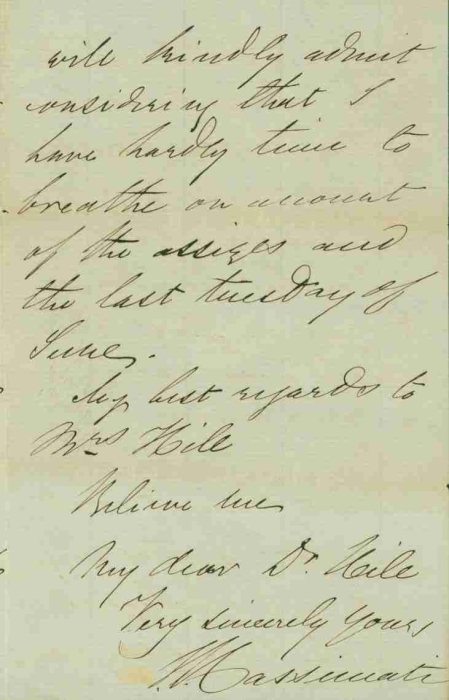 will kindly admit
considering that I
have hardly time to
breathe on account
of the assizes and
the last tuesday of
June.
My best regards to
Mrs Hile
Believe me
My dear Dr. Hile
Very sincerely yours